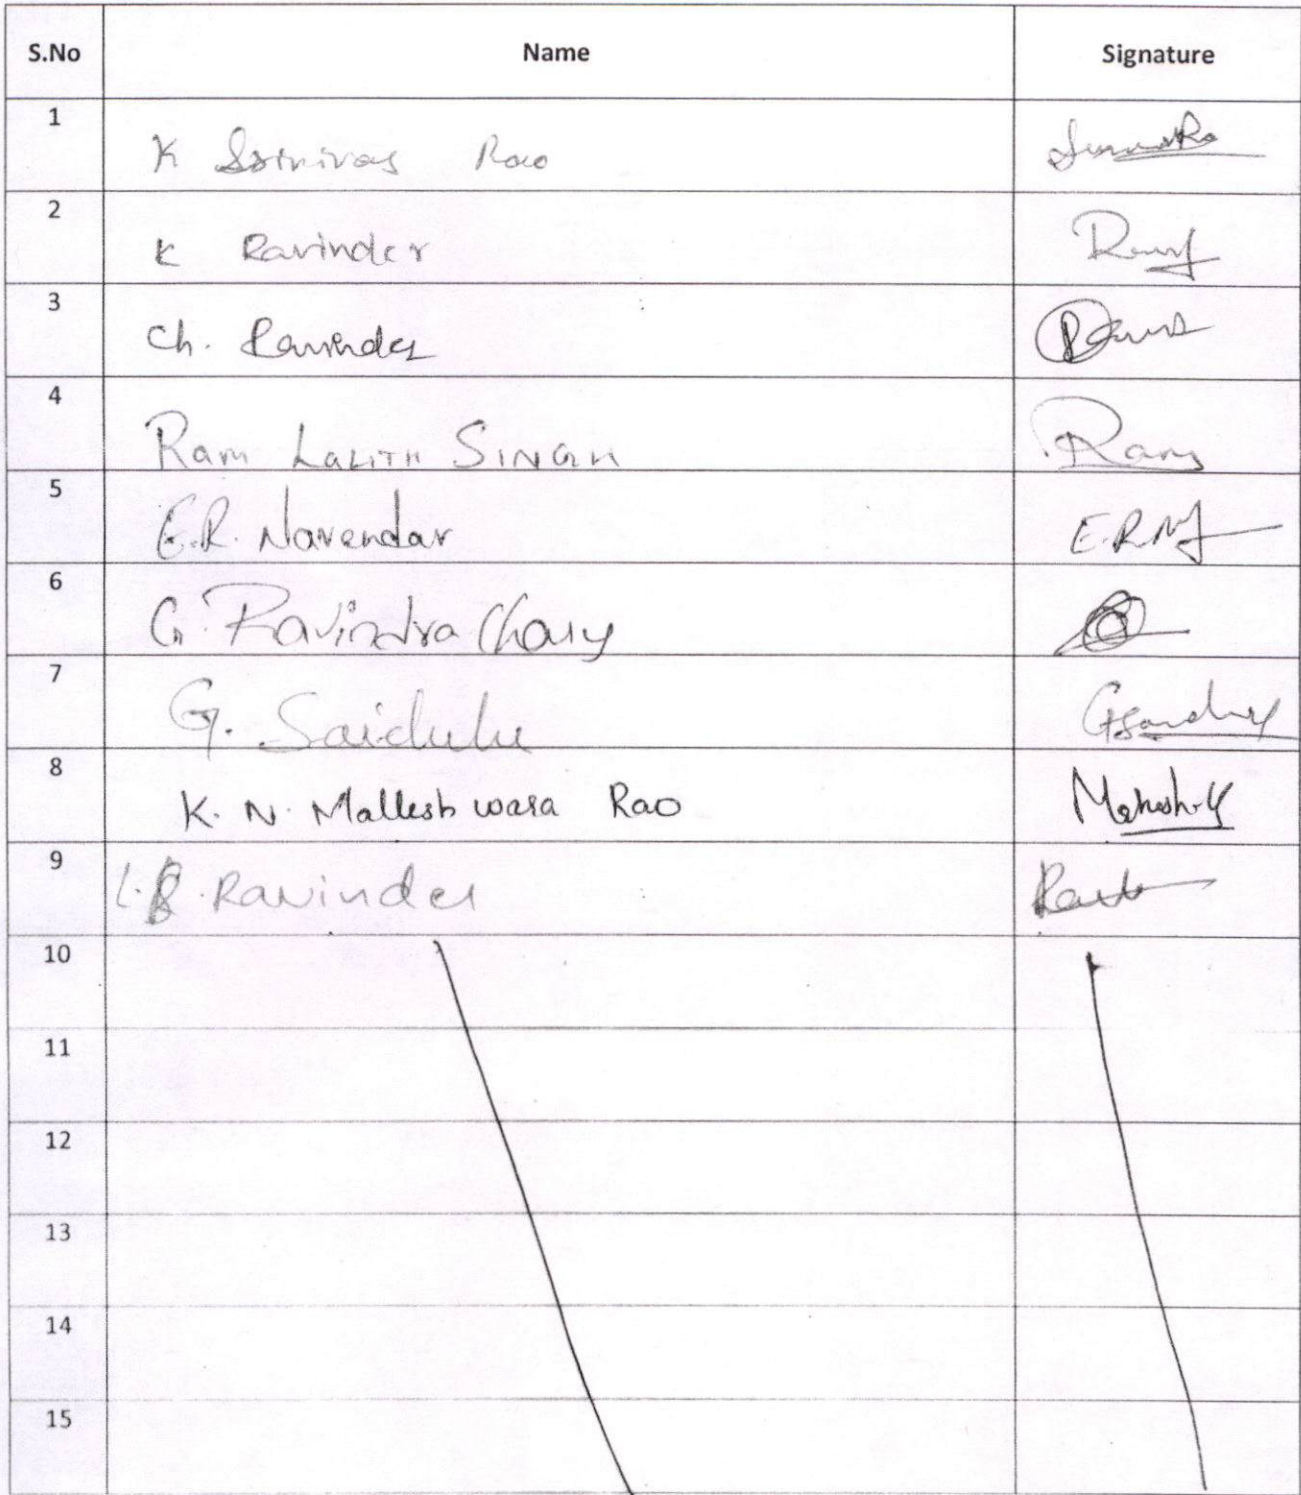 S.No Name Signature
1 K Srinivas Rao
2 K Ravinder
3 Ch. Ravinder
4 Ram LALITH SINGH Ram
5 E.R. Narendar E.R.N
6 G. Ravindra Chary
7 G. Saidulu
8 K. N. Malleshwara Rao
9 L. Ravinder
10
11
12
13
14
15